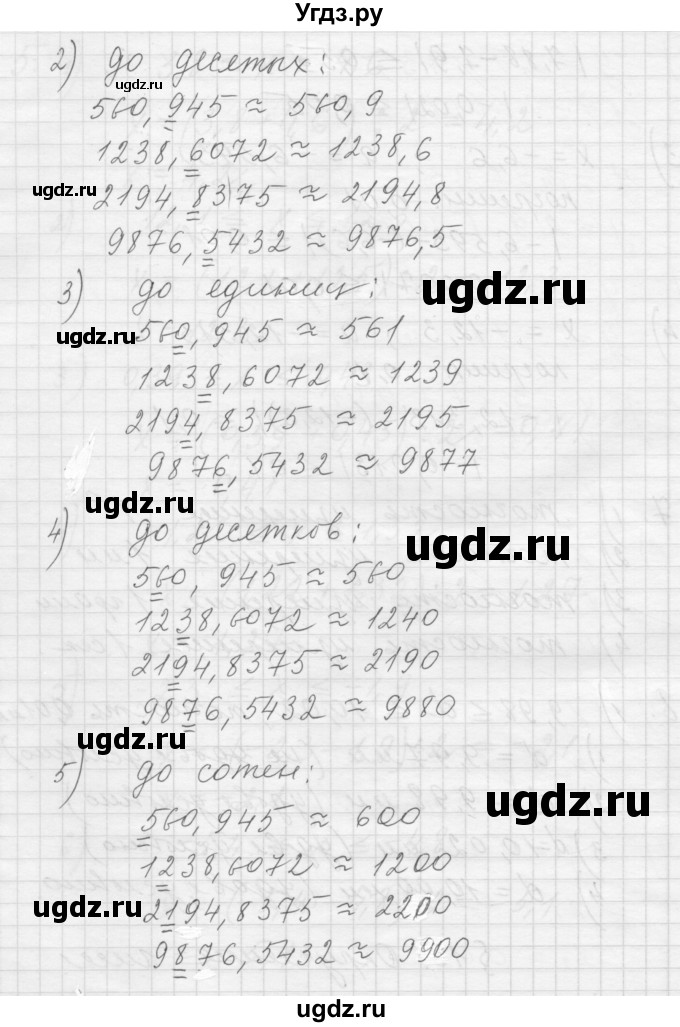 Угдз.ру
2) до десятых:
ugdz.ru
560,945 ≈ 560,9
1238,6072 ≈ 1238,6
ugdz.ru
2194,8375 ≈ 2194,8
9876,5432 ≈ 9876,5
3) до единиц:
ugdz.ru
ugdz.ru
560,945 ≈ 561
1238,6072 ≈ 1239
2194,8375 ≈ 2195
9876,5432 ≈ 9877
ugdz.ru
4) до десятков:
ugdz.ru
560,945 ≈ 560
1238,6072 ≈ 1240
2194,8375 ≈ 2190
9876,5432 ≈ 9880
ugdz.ru
5) до сотен:
ugdz.ru
560,945 ≈ 600
1238,6072 ≈ 1200
ugdz.ru
2194,8375 ≈ 2200
9876,5432 ≈ 9900
ugdz.ru